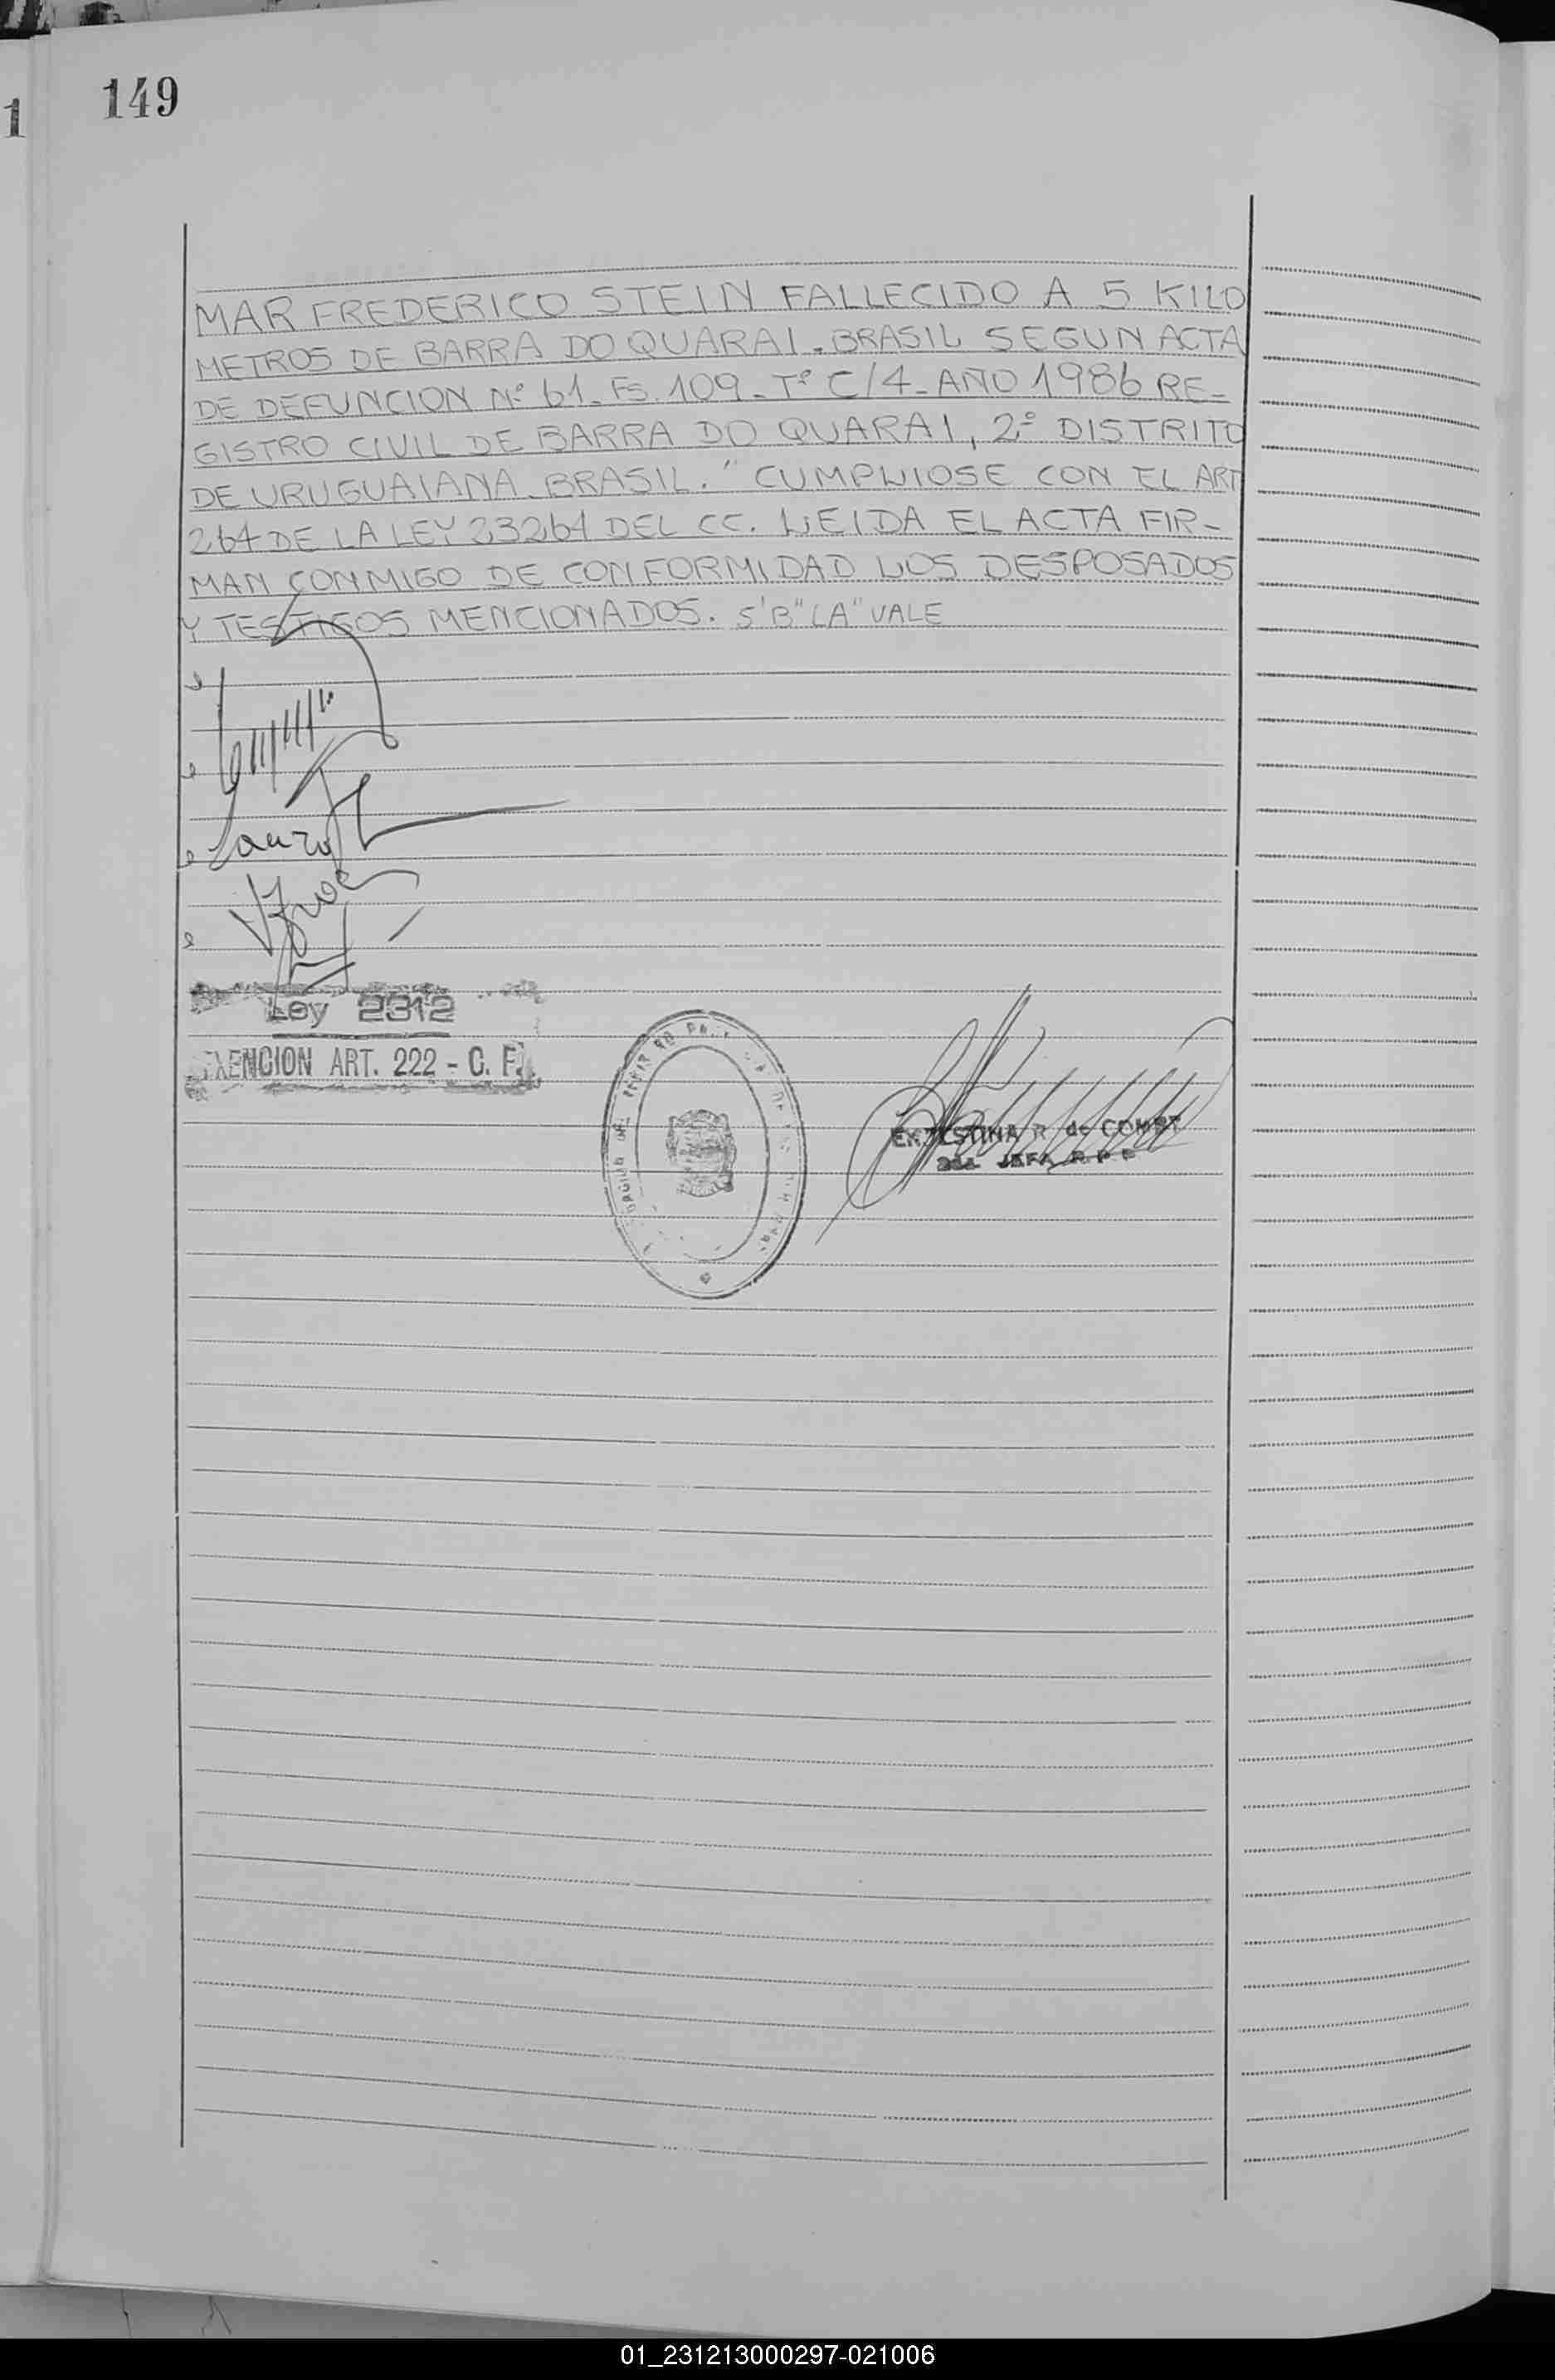 149
1
MAR FREDERICO STEIN FALLECIDO A 5 KILO
METROS DE BARRA DO QUARAI. BRASIL SEGUN ACTA
DE DEFUNCION Nº 61. Fs. 109. Tº C/4. AÑO 1986 RE-
GISTRO CIVIL DE BARRA DO QUARAI, 2º DISTRITO
DE URUGUAIANA. BRASIL." CUMPLIOSE CON EL ART
264 DE LA LEY 23264 DEL CC. LEIDA EL ACTA FIR-
MAN CONMIGO DE CONFORMIDAD LOS DESPOSADOS
Y TESTIGOS MENCIONADOS. S'B "LA" VALE
Ley 2312
EXENCION ART. 222 - C. F.
R de
JEFA R P P
01_231213000297-021006